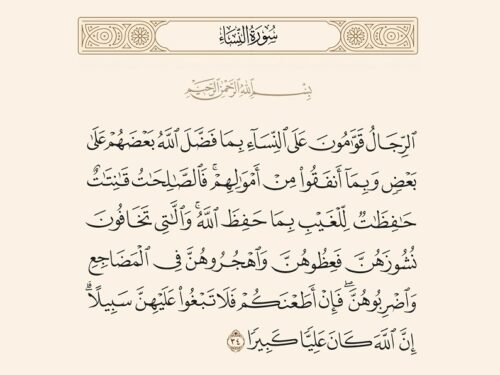 سُورَةُ النِّسَاءِ
بِسْمِ اللَّهِ الرَّحْمَٰنِ الرَّحِيمِ
الرِّجَالُ قَوَّامُونَ عَلَى النِّسَاءِ بِمَا فَضَّلَ اللَّهُ بَعْضَهُمْ عَلَىٰ
بَعْضٍ وَبِمَا أَنفَقُوا مِنْ أَمْوَالِهِمْ ۚ فَالصَّالِحَاتُ قَانِتَاتٌ
حَافِظَاتٌ لِّلْغَيْبِ بِمَا حَفِظَ اللَّهُ ۚ وَالَّاتِي تَخَافُونَ
نُشُوزَهُنَّ فَعِظُوهُنَّ وَاهْجُرُوهُنَّ فِي الْمَضَاجِعِ
وَاضْرِبُوهُنَّ ۖ فَإِنْ أَطَعْنَكُمْ فَلَا تَبْغُوا عَلَيْهِنَّ سَبِيلًا ۗ
إِنَّ اللَّهَ كَانَ عَلِيًّا كَبِيرًا ٣٤